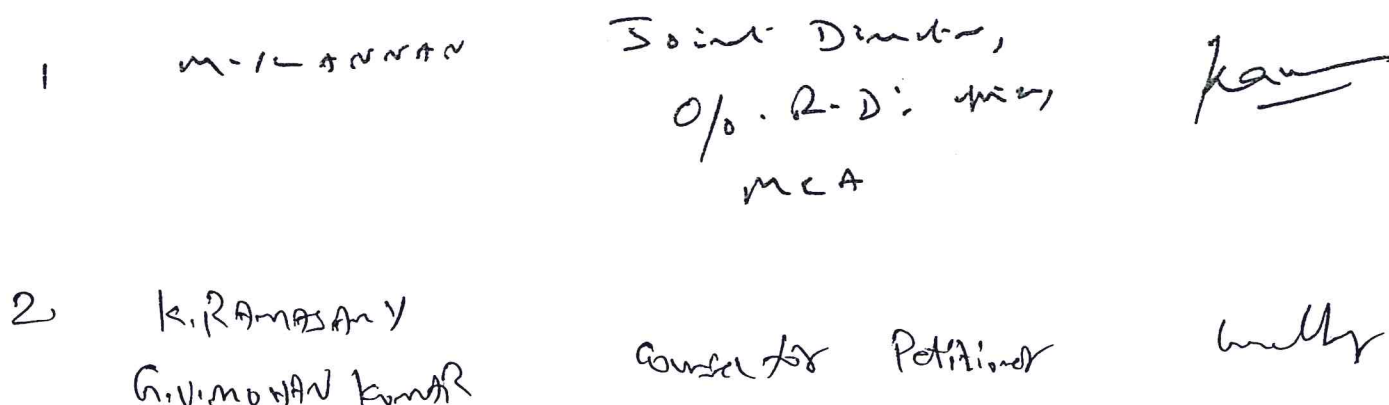 1 M. KANNAN Joint Director,
O/o. R.D.
MCA
2 K. RAMASAMY
G.V. MOHAN KUMAR Counsel for Petitioner